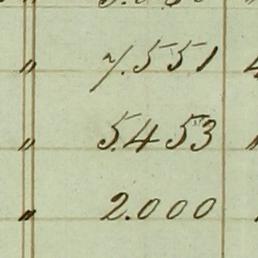 " 7.551
" 5.453
" 2.000